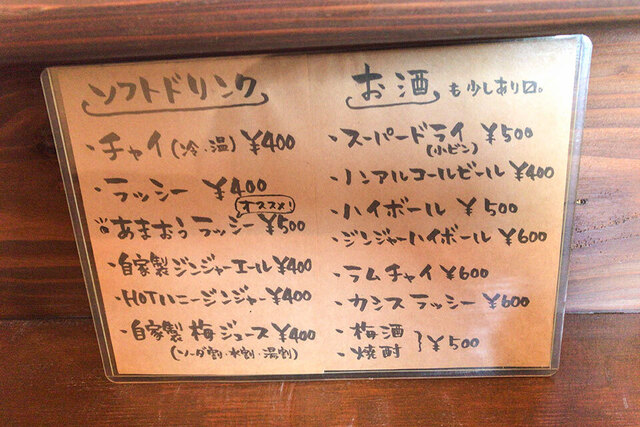 ソフトドリンク
・チャイ(冷・温) ¥400
・ラッシー ¥400
オススメ!
あまおうラッシー ¥500
・自家製ジンジャーエール ¥400
・HOTハニージンジャー ¥400
・自家製梅ジュース ¥400
(ソーダ割・水割・湯割)
お酒も少しあり〼。
・スーパードライ ¥500
(小ビン)
・ノンアルコールビール ¥400
・ハイボール ¥500
・ジンジャーハイボール ¥600
・ラムチャイ ¥600
・カシスラッシー ¥600
・梅酒
・焼酎 } ¥500